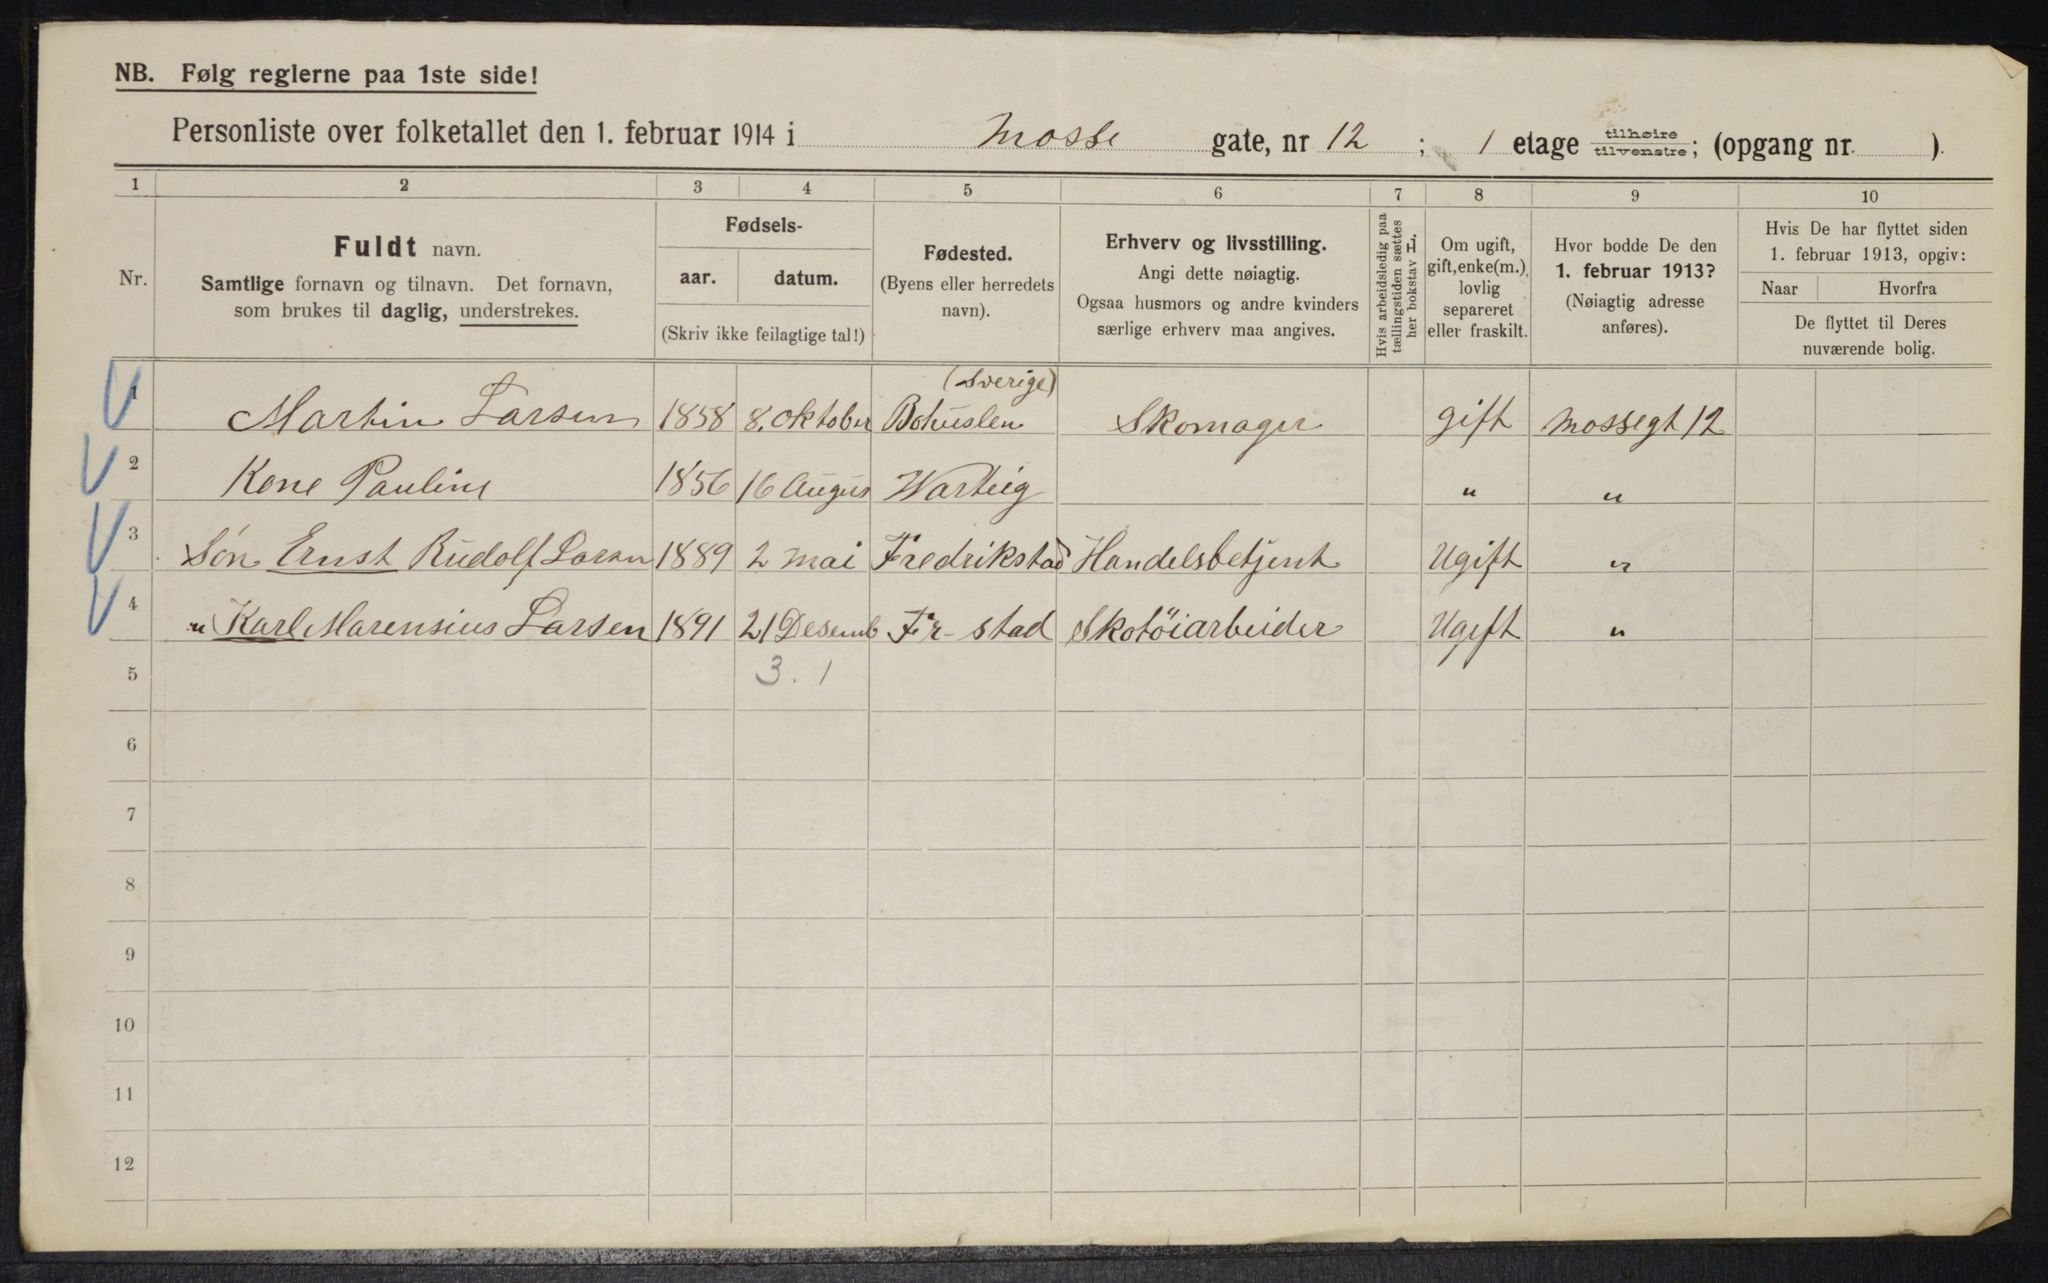 NB. Følg reglerne paa 1ste side!
Personliste over folketallet den 1. februar 1914 i Mosse gate, nr 12 ; 1 etage tilhøire tilvenstre; (opgang nr. ).
1 2 3 4 5 6 7 8 9 10
Nr.
Fuldt navn.
Samtlige fornavn og tilnavn. Det fornavn,
som brukes til daglig, understrekes.
Fødsels-
aar. datum.
(Skriv ikke feilagtige tal!)
Fødested.
(Byens eller herredets
navn).
Erhverv og livsstilling.
Angi dette nøiagtig.
Ogsaa husmors og andre kvinders
særlige erhverv maa angives.
Hvis arbeidsledig paa
tællingstiden sættes
her bokstav L.
Om ugift,
gift, enke(m.),
lovlig
separeret
eller fraskilt.
Hvor bodde De den
1. februar 1913?
(Nøiagtig adresse
anføres).
Hvis De har flyttet siden
1. februar 1913, opgiv:
Naar Hvorfra
De flyttet til Deres
nuværende bolig.
(Sverige)
1 Martin Larsen 1858 8. Oktober Bohuslen Skomager gift Mossegt 12
2 Kone Pauline 1856 16 Augus Warteig " "
3 Søn Ernst Rudolf Larsen 1889 2 Mai Fredrikstad Handelsbetjent Ugift "
4 " Karl Marensius Larsen 1891 21 Desemb Fr-stad Skotöiarbeider Ugift "
5 3. 1
6
7
8
9
10
11
12